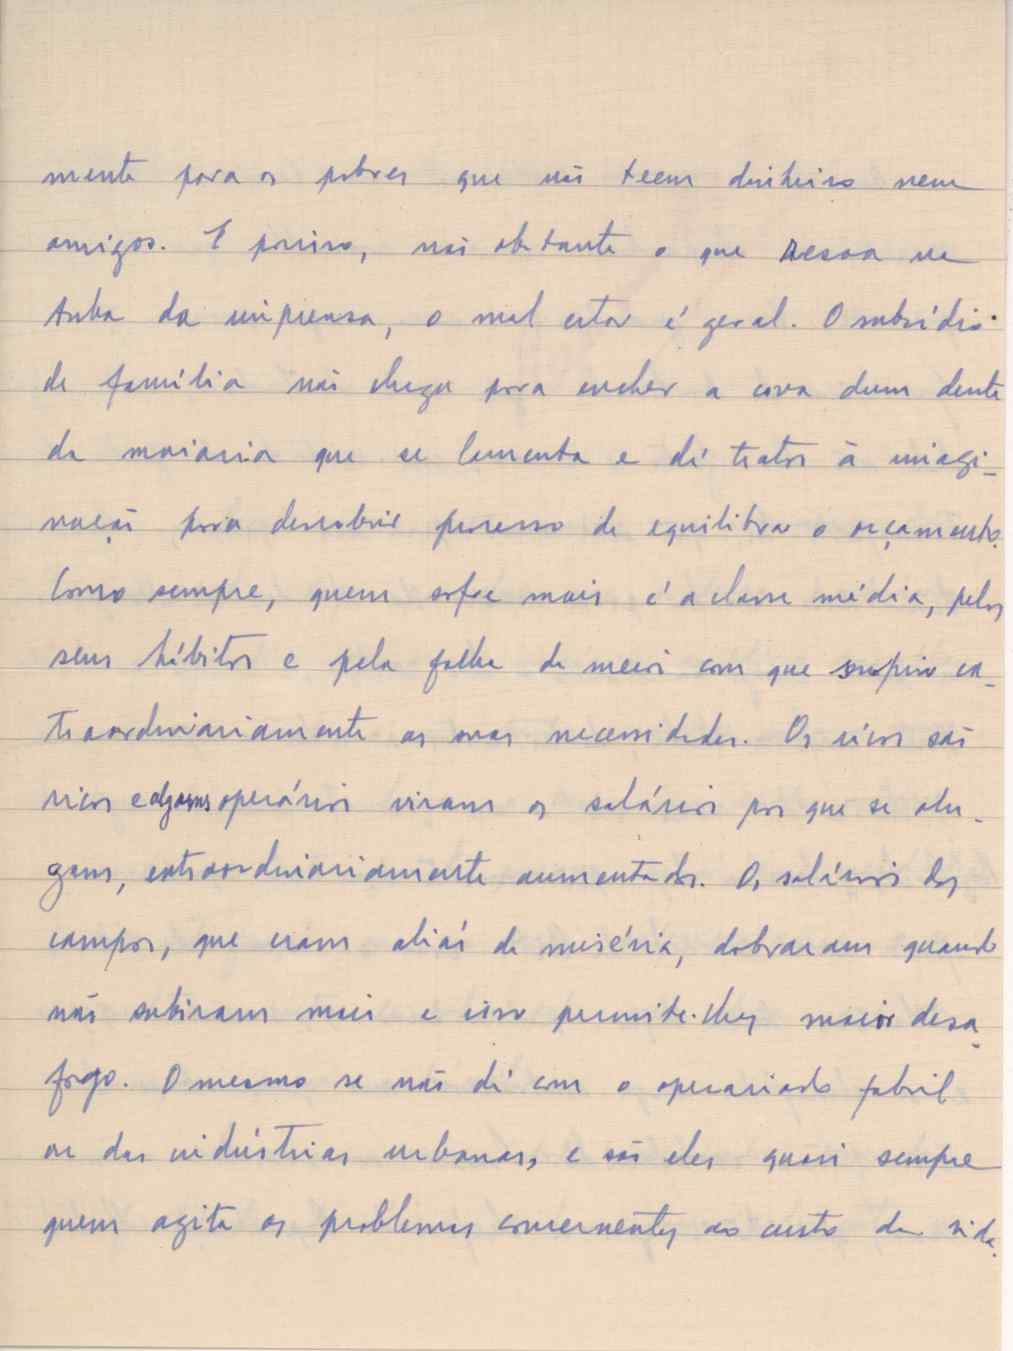 mente para os pobres que não teem dinheiro nem
amigos. E por isso, não obstante o que ressoa na
tuba da imprensa, o mal estar é geral. O subsídio
de família não chega para encher a cova dum dente
da maioria que se lamenta e dá tratos à imagi-
nação para descobrir processo de equilibrar o orçamento.
Como sempre, quem sofre mais é a classe média, pelos
seus hábitos e pela falta de meios com que suprir ex-
traordinariamente as suas necessidades. Os ricos são
ricos e alguns operários viram os salários por que se alu-
gam, extraordinariamente aumentados. Os salários dos
campos, que eram aliás de miséria, dobraram quando
não subiram mais e isso permite-lhes maior desa-
fogo. O mesmo se não dá com o operariado fabril
ou das indústrias urbanas, e são eles quasi sempre
quem agita os problemas concernentes ao custo da vida.